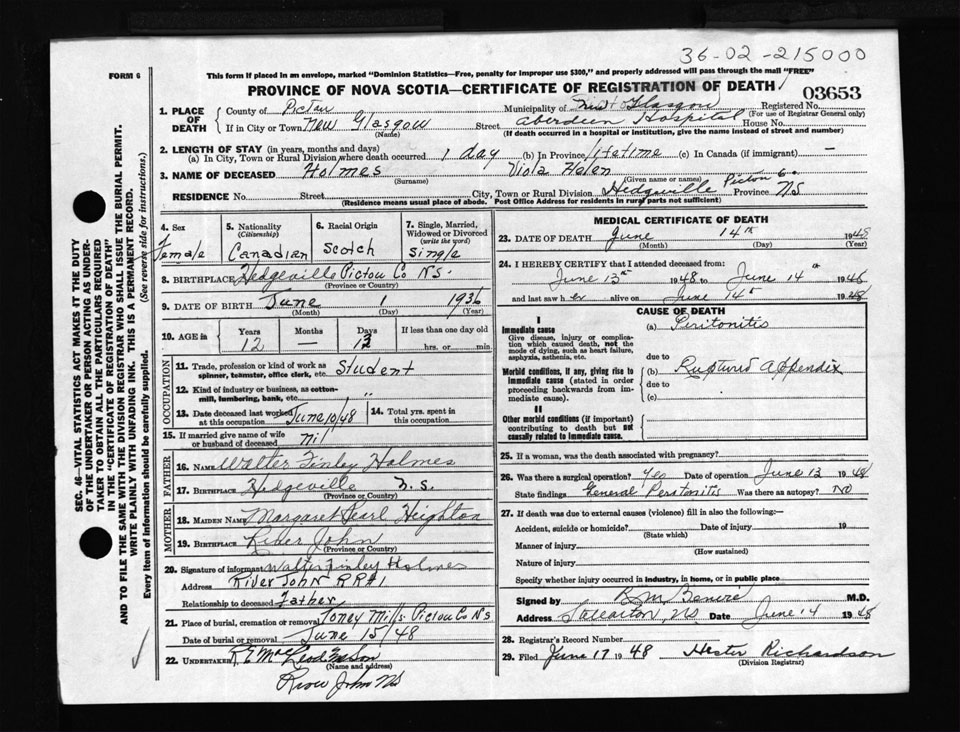 36-02-215000
FORM 6
This form if placed in an envelope, marked "Dominion Statistics—Free, penalty for improper use $300," and properly addressed will pass through the mail "FREE"
PROVINCE OF NOVA SCOTIA—CERTIFICATE OF REGISTRATION OF DEATH
03653
1. PLACE OF DEATH
County of Pictou
Municipality of Glasgow
Registered No.
(For use of Registrar General only)
If in City or Town New Glasgow
(Name)
Street Aberdeen Hospital House No.
(If death occurred in a hospital or institution, give the name instead of street and number)
2. LENGTH OF STAY (in years, months and days)
(a) In City, Town or Rural Division where death occurred 1 day (b) In Province lifetime (c) In Canada (if immigrant) —
3. NAME OF DECEASED Holmes Viola Helen
(Surname) (Given name or names)
RESIDENCE No. Street City, Town or Rural Division Hedgeville Pictou Co. Province NS
(Residence means usual place of abode. Post Office Address for residents in rural parts not sufficient)
4. Sex
Female
5. Nationality
(Citizenship)
Canadian
6. Racial Origin
Scotch
7. Single, Married, Widowed or Divorced
(write the word)
Single
8. BIRTHPLACE Hedgeville Pictou Co NS.
(Province or Country)
9. DATE OF BIRTH June 1 1936
(Month) (Day) (Year)
10. AGE in
Years Months Days If less than one day old
12 — 13 hrs. or min.
OCCUPATION
11. Trade, profession or kind of work as spinner, teamster, office clerk, etc. Student
12. Kind of industry or business, as cotton-mill, lumbering, bank, etc. "
13. Date deceased last worked at this occupation June 10/48
14. Total yrs. spent in this occupation
15. If married give name of wife or husband of deceased nil
FATHER
16. NAME Walter Finley Holmes
17. BIRTHPLACE Hedgeville N.S.
MOTHER
18. MAIDEN NAME Margaret Pearl Heighton
19. BIRTHPLACE River John
(Province or Country)
20. Signature of informant Walter Finley Holmes
Address River John RR#1
Relationship to deceased Father
21. Place of burial, cremation or removal Toney Mills Pictou Co NS
Date of burial or removal June 15/48
22. UNDERTAKER R E MacLeod & Son
(Name and address)
River John NS
MEDICAL CERTIFICATE OF DEATH
23. DATE OF DEATH June 14th 1948
(Month) (Day) (Year)
24. I HEREBY CERTIFY that I attended deceased from:
June 13th 1948 to June 14th 1948
and last saw her alive on June 14th 1948
CAUSE OF DEATH
I
Immediate cause
Give disease, injury or complication which caused death, not the mode of dying, such as heart failure, asphyxia, asthenia, etc.
(a) Peritonitis
due to
Morbid conditions, if any, giving rise to immediate cause (stated in order proceeding backwards from immediate cause).
(b) Ruptured appendix
due to
(c)
II
Other morbid conditions (if important) contributing to death but not causally related to immediate cause.
25. If a woman, was the death associated with pregnancy?
26. Was there a surgical operation? Yes Date of operation June 13 1948
State findings General Peratonitis Was there an autopsy? No
27. If death was due to external causes (violence) fill in also the following:—
Accident, suicide or homicide? Date of injury 19
(State which)
Manner of injury
(How sustained)
Nature of injury
Specify whether injury occurred in industry, in home, or in public place
Signed by M.D.
Address Stellarton, NS Date June 14 1948
28. Registrar's Record Number
29. Filed June 17 1948 Hester Richardson
(Division Registrar)
SEC. 46—VITAL STATISTICS ACT MAKES IT THE DUTY
OF THE UNDERTAKER OR PERSON ACTING AS UNDER-
TAKER TO OBTAIN ALL THE PARTICULARS REQUIRED
IN THE "CERTIFICATE OF REGISTRATION OF DEATH"
AND TO FILE THE SAME WITH THE DIVISION REGISTRAR WHO SHALL ISSUE THE BURIAL PERMIT.
WRITE PLAINLY WITH UNFADING INK. THIS IS A PERMANENT RECORD.
Every item of information should be carefully supplied. (See reverse side for instructions.)